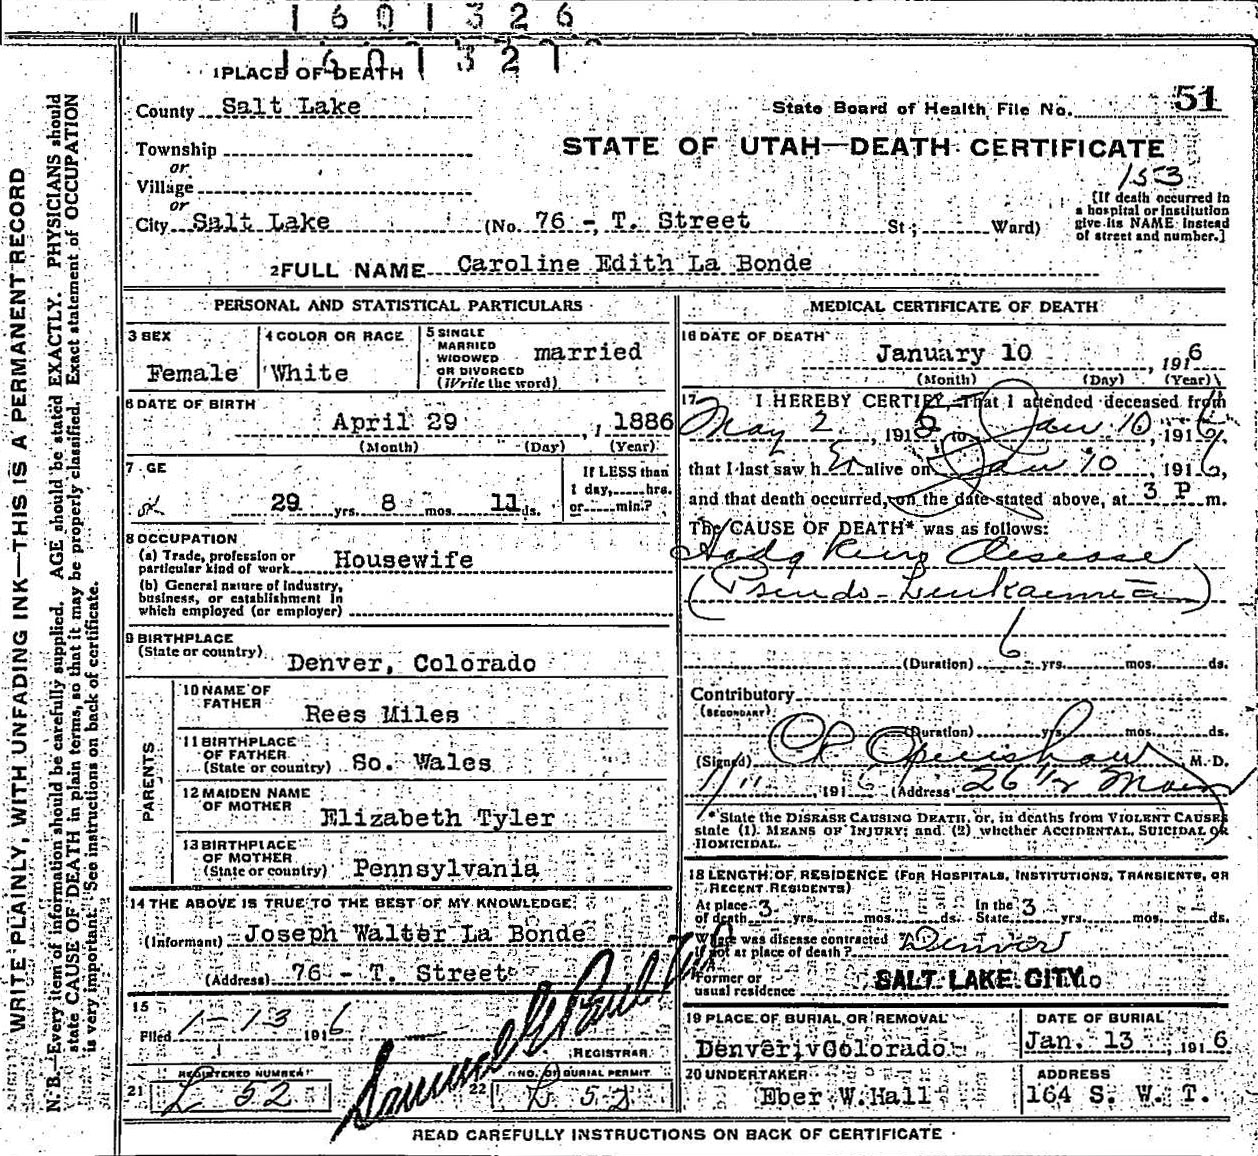 1601326
1601327
1 PLACE OF DEATH
County Salt Lake
State Board of Health File No. 51
Township
or
Village
or
STATE OF UTAH—DEATH CERTIFICATE
153
City Salt Lake (No. 76 - T. Street St; Ward)
[If death occurred in
a hospital or institution
give its NAME instead
of street and number.]
2 FULL NAME Caroline Edith La Bonde
PERSONAL AND STATISTICAL PARTICULARS
3 SEX
Female
4 COLOR OR RACE
White
5 SINGLE
MARRIED
WIDOWED
OR DIVORCED
(Write the word)
married
6 DATE OF BIRTH
April 29, 1886
(Month) (Day) (Year)
7 GE
29 yrs. 8 mos. 11 ds.
If LESS than
1 day, hrs.
or min.?
8 OCCUPATION
(a) Trade, profession or
particular kind of work Housewife
(b) General nature of industry,
business, or establishment in
which employed (or employer)
9 BIRTHPLACE
(State or country) Denver, Colorado
PARENTS
10 NAME OF
FATHER
Rees Miles
11 BIRTHPLACE
OF FATHER
(State or country) So. Wales
12 MAIDEN NAME
OF MOTHER
Elizabeth Tyler
13 BIRTHPLACE
OF MOTHER
(State or country) Pennsylvania
14 THE ABOVE IS TRUE TO THE BEST OF MY KNOWLEDGE
(Informant) Joseph Walter La Bonde
(Address) 76 - T. Street
15
Filed 1-13 1916
REGISTRAR
21 REGISTERED NUMBER
L 52
22 NO. OF BURIAL PERMIT
L 52
MEDICAL CERTIFICATE OF DEATH
16 DATE OF DEATH
January 10, 1916
(Month) (Day) (Year)
17 I HEREBY CERTIFY, That I attended deceased from
May 2, 1915 to Jan 10, 1916,
that I last saw her alive on Jan 10, 1916,
and that death occurred, on the date stated above, at 3 P m.
The CAUSE OF DEATH* was as follows:
Hodgkins Disease
(Pseudo-Leukaemia)
(Duration) 6 yrs. mos. ds.
Contributory
(SECONDARY)
(Duration) yrs. mos. ds.
(Signed) Openshaw M. D.
1/11 1916 (Address) 26 1/2 Main
*State the DISEASE CAUSING DEATH, or, in deaths from VIOLENT CAUSES
state (1) MEANS OF INJURY; and (2) whether ACCIDENTAL, SUICIDAL OR
HOMICIDAL.
18 LENGTH OF RESIDENCE (FOR HOSPITALS, INSTITUTIONS, TRANSIENTS, OR
RECENT RESIDENTS)
At place
of death 3 yrs. mos. ds.
In the
State 3 yrs. mos. ds.
Where was disease contracted
if not at place of death? Denver
Former or
usual residence SALT LAKE CITY
19 PLACE OF BURIAL OR REMOVAL
Denver, Colorado
DATE OF BURIAL
Jan. 13, 1916
20 UNDERTAKER
Eber W. Hall
ADDRESS
164 S. W. T.
READ CAREFULLY INSTRUCTIONS ON BACK OF CERTIFICATE
WRITE PLAINLY, WITH UNFADING INK—THIS IS A PERMANENT RECORD
N. B.—Every item of information should be carefully supplied. AGE should be stated EXACTLY. PHYSICIANS should
state CAUSE OF DEATH in plain terms, so that it may be properly classified. Exact statement of OCCUPATION
is very important. See instructions on back of certificate.